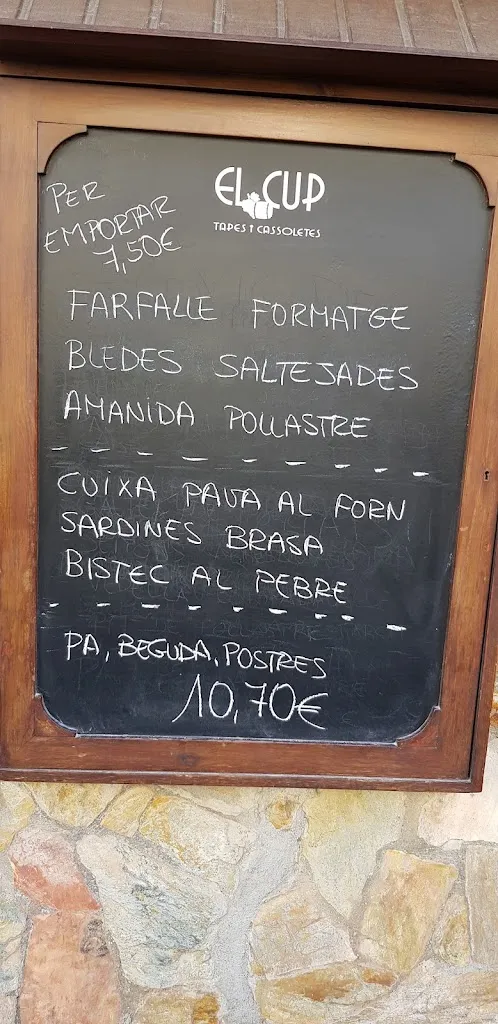 EL CUP
TAPES I CASSOLETES
PER
EMPORTAR
7,50€
FARFALLE FORMATGE
BLEDES SALTEJADES
AMANIDA POLLASTRE
CUIXA PAVA AL FORN
SARDINES BRASA
BISTEC AL PEBRE
PA, BEGUDA, POSTRES
10,70€